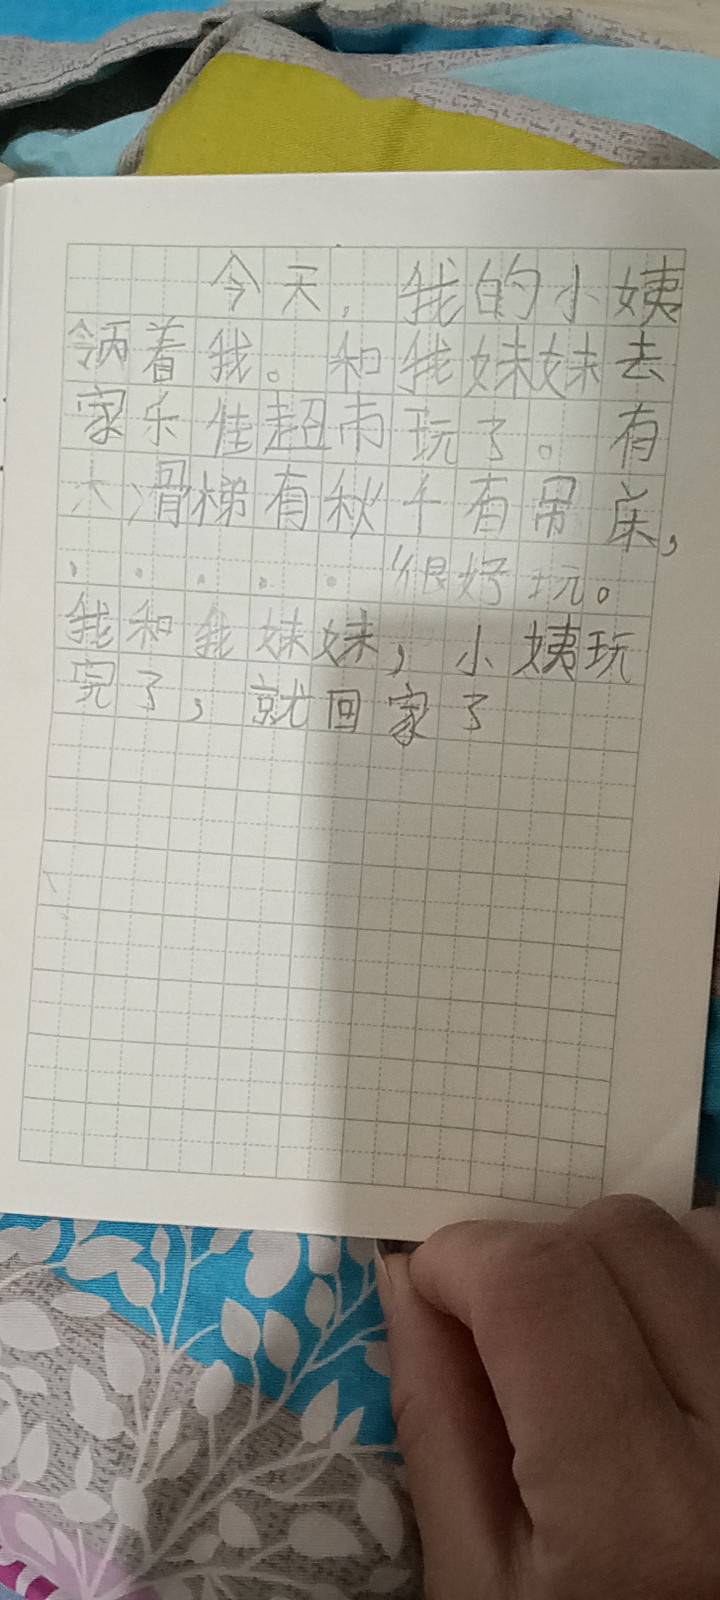 今天，我的小姨
领着我。和我妹妹去
家乐佳超市玩了。有
大滑梯有秋千有吊床，
．．．．．很好玩。
我和我妹妹，小姨玩
完了，就回家了